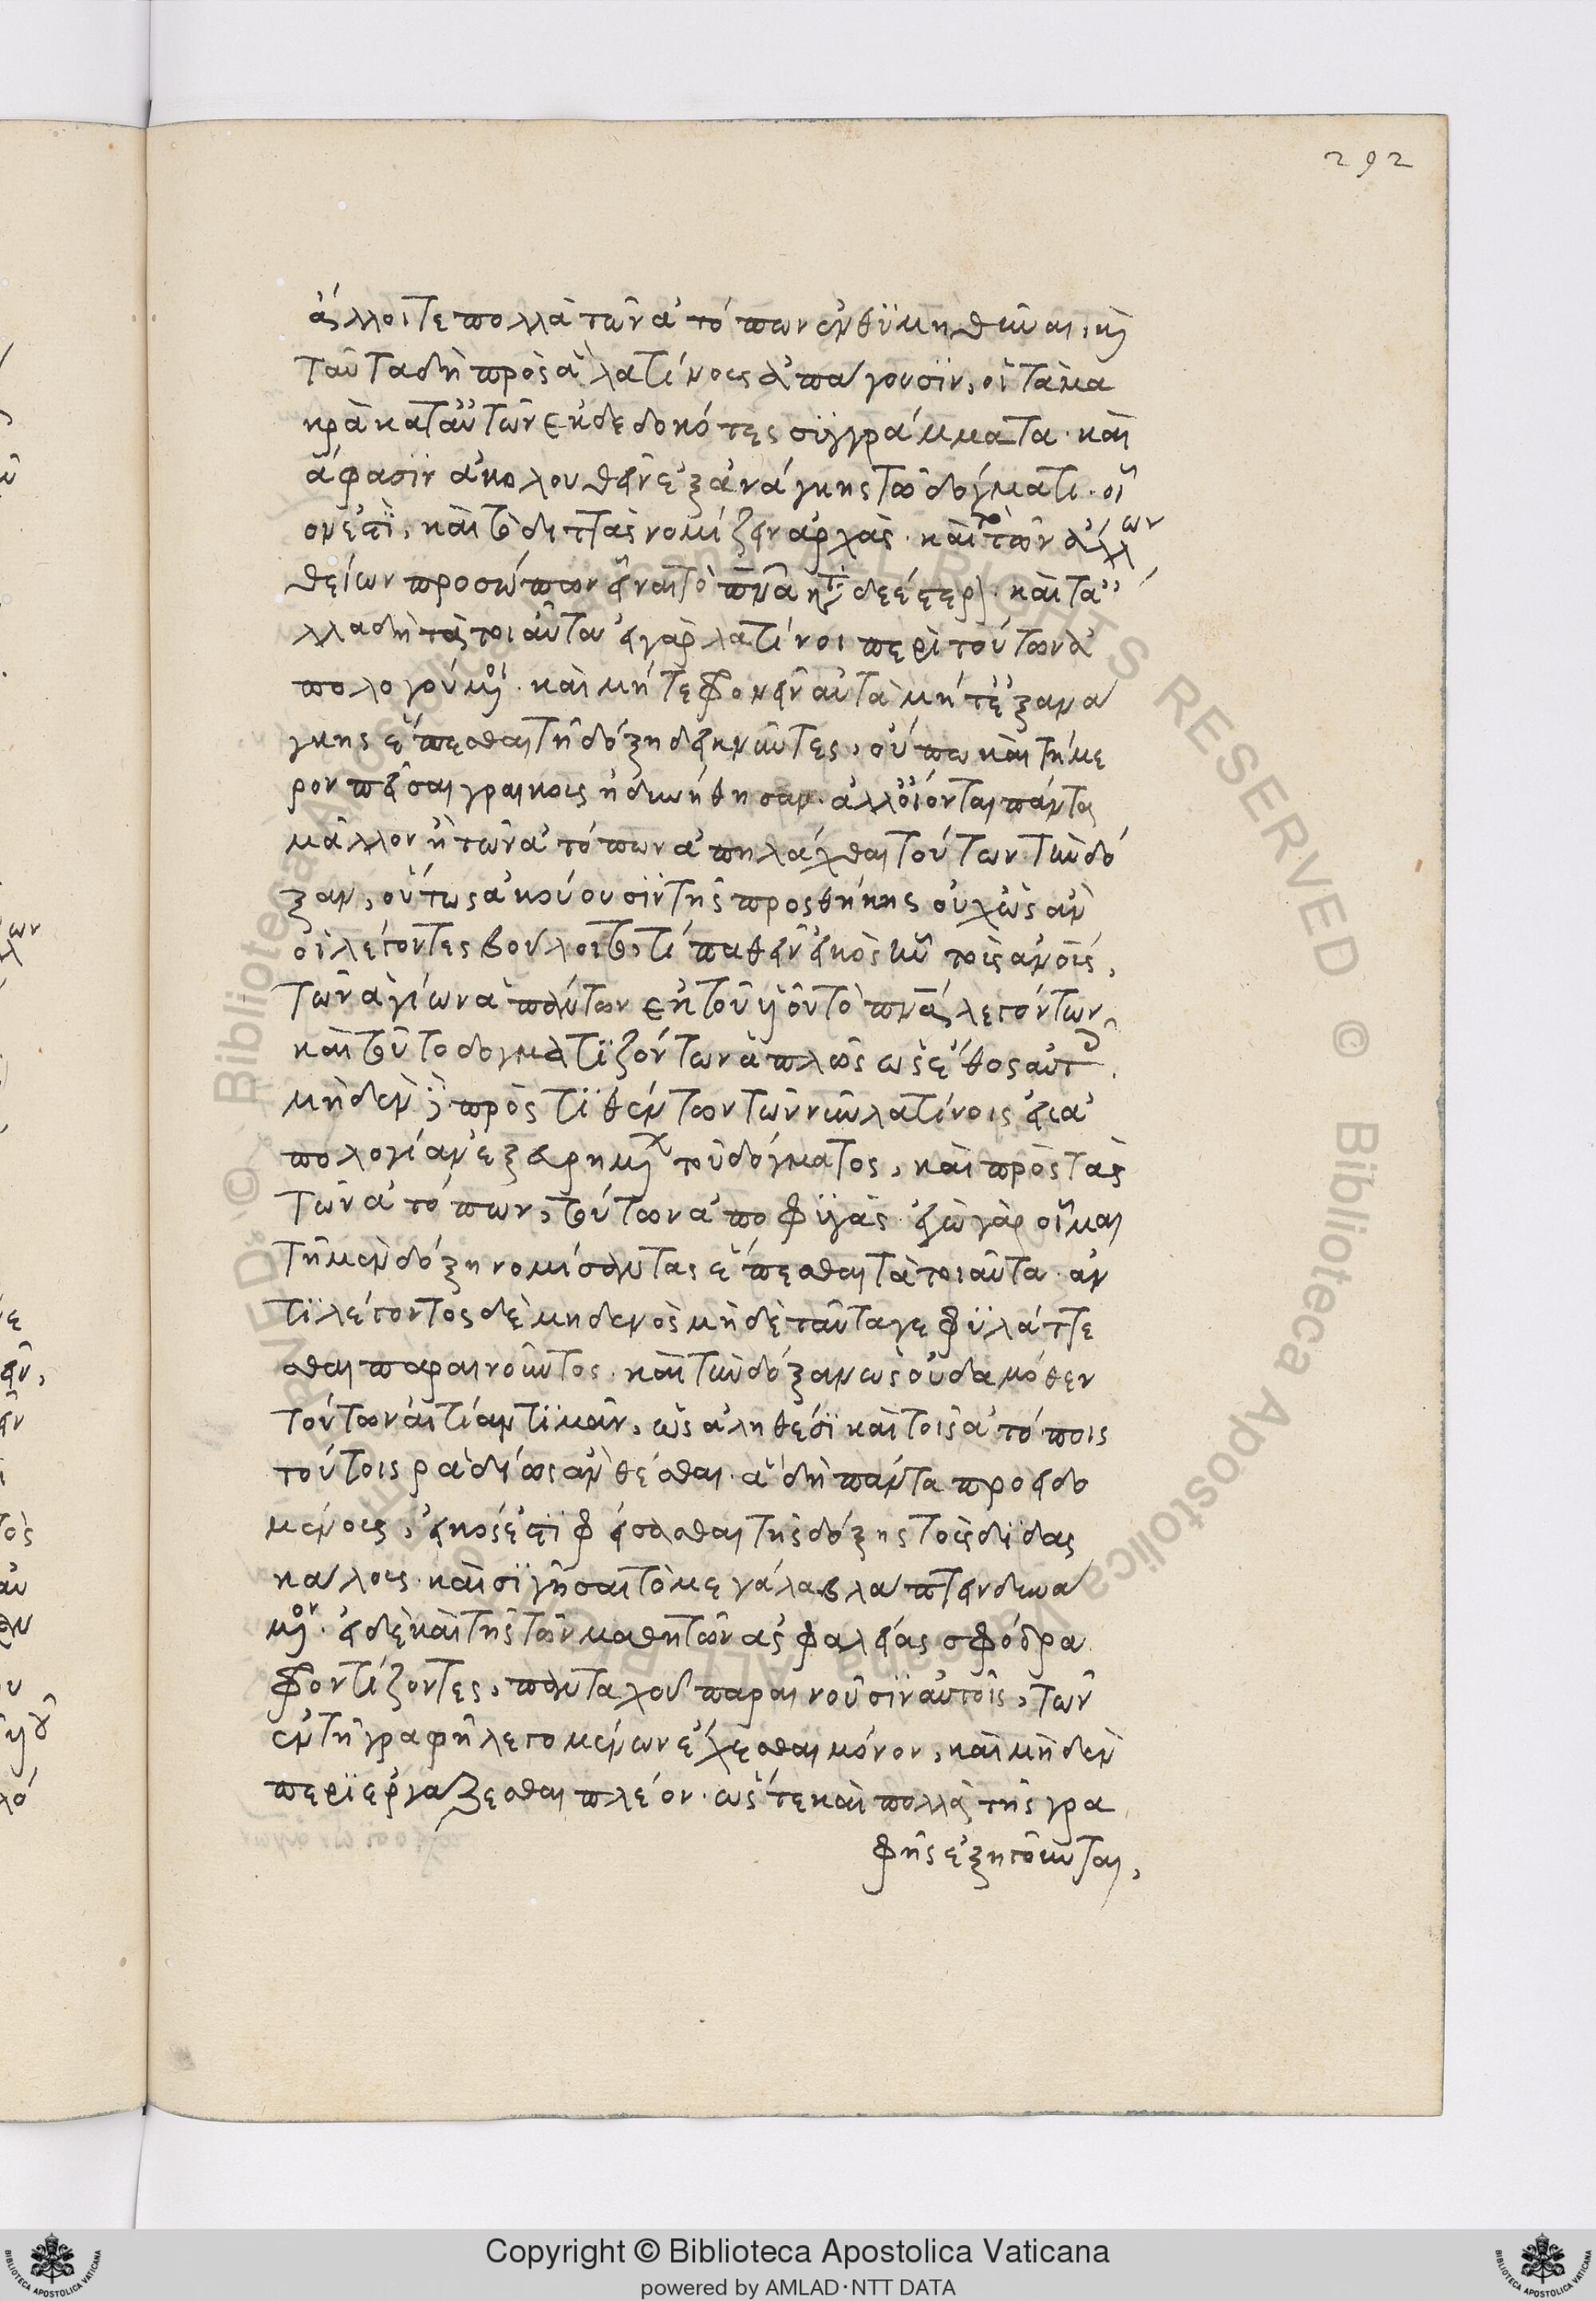 292
ἄλλοι τε πολλὰ τῶν ἀτόπων ἐνθυμηθῆναι, κ(αὶ)
ταῦτα δὴ πρὸς ἃ λατίνους ἀπάγουσϊν, οἱ τὰ μα
κρὰ κατ αὐτῶν ἐκδεδοκότες σϋγγράμματα. καὶ
ἅ φασϊν ἀκολουθεῖν ἐξ ἀνάγκης τῶ δόγματι. οἷ
ον ἐστὶ, καὶ τὸ διττὰς νομίζειν ἀρχὰς. καὶ τὸ τῶν ἄλλων
θείων προσώπων εἶναι τὸ πνᾶ κτί δεέστερ. καὶ τἄ
λλα δὴ τὰ τοιαῦτα. εἰ γὰρ λατίνοι περὶ τούτων ἀ
πολογούμ(εν)οι. καὶ μήτε φρονεῖν αὐτὰ μήτ ἐξ ανά
γκης ἕπεσθαι τῆ δόξη δεικνῦντες, οὔπω καὶ τήμε
ρον πεῖσαι γραικοὺς ἠδυνήθησαν. ἀλλ οἴονται πάντα
μᾶλλον ἢ τῶν ἀτόπων ἀπηλάχθαι τούτων τὴν δό
ξαν, οὕτως ἀκούουσϊν τῆς προσθήκης οὐχ ὡς ἂν
οἱ λέγοντες βούλοιντο, τί παθεῖν εἰκὸς ἦν τοὺς ἀν(θρώπ)οις,
τῶν ἁγίων ἁπάντων ἐκ τοῦ υἱοῦ τὸ πνᾶ λεγόντων,
καὶ τοῦτο δογματϊζόντων ἁπλῶς ὡς ἔθος αὐτ(οῖς).
μηδὲν δὲ προστϊθέντων τῶν νῦν λατίνοις εἰς ἀ
πολογίαν ἐξειρημ(έν)ων τοῦ δόγματος, καὶ πρὸς τὰς
τῶν ἀτόπων, τούτων ἀποφϋγὰς. ἐγὼ γὰρ οἶμαι
τῆ μὲν δόξη νομίσαντας ἕπεσθαι τὰ τοιαῦτα. ἀν
τϊλέγοντος δὲ μηδενὸς μηδὲ ταῦτα γε φϋλάττε
σθαι παραινοῦντος. καὶ τὴν δόξαν ὡς οὐδαμόθεν
τούτων αἰτίαν τϊμᾶν, ὡς ἀληθέσϊ καὶ τοῖς ἀτόποις
τούτοις ραδίως ἂν θέσθαι. ἃ δὴ πάντα προειδο
μένους, εἰκός ἐστι φείσασθαι τῆς δόξης τοὺς διδας
κάλους. καὶ σϊγῆσαι τὸ μεγάλα βλάπτειν δυνά
μ(εν)ον. εἰ δὲ καὶ τῆς τῶν μαθητῶν ἀσφαλείας σφόδρα
φροντίζοντες, πανταχοῦ παραινοῦσϊν αὐτοῖς, τῶν
ἐν τῆ γραφῆ λεγομένων ἔχεσθαι μόνον, καὶ μηδὲν
περϊεργάζεσθαι πλέον. ὥς τε καὶ πολλὰ τῆς γρα
φῆς ἐξηγοῦνται,
Copyright © Biblioteca Apostolica Vaticana
powered by AMLAD·NTT DATA